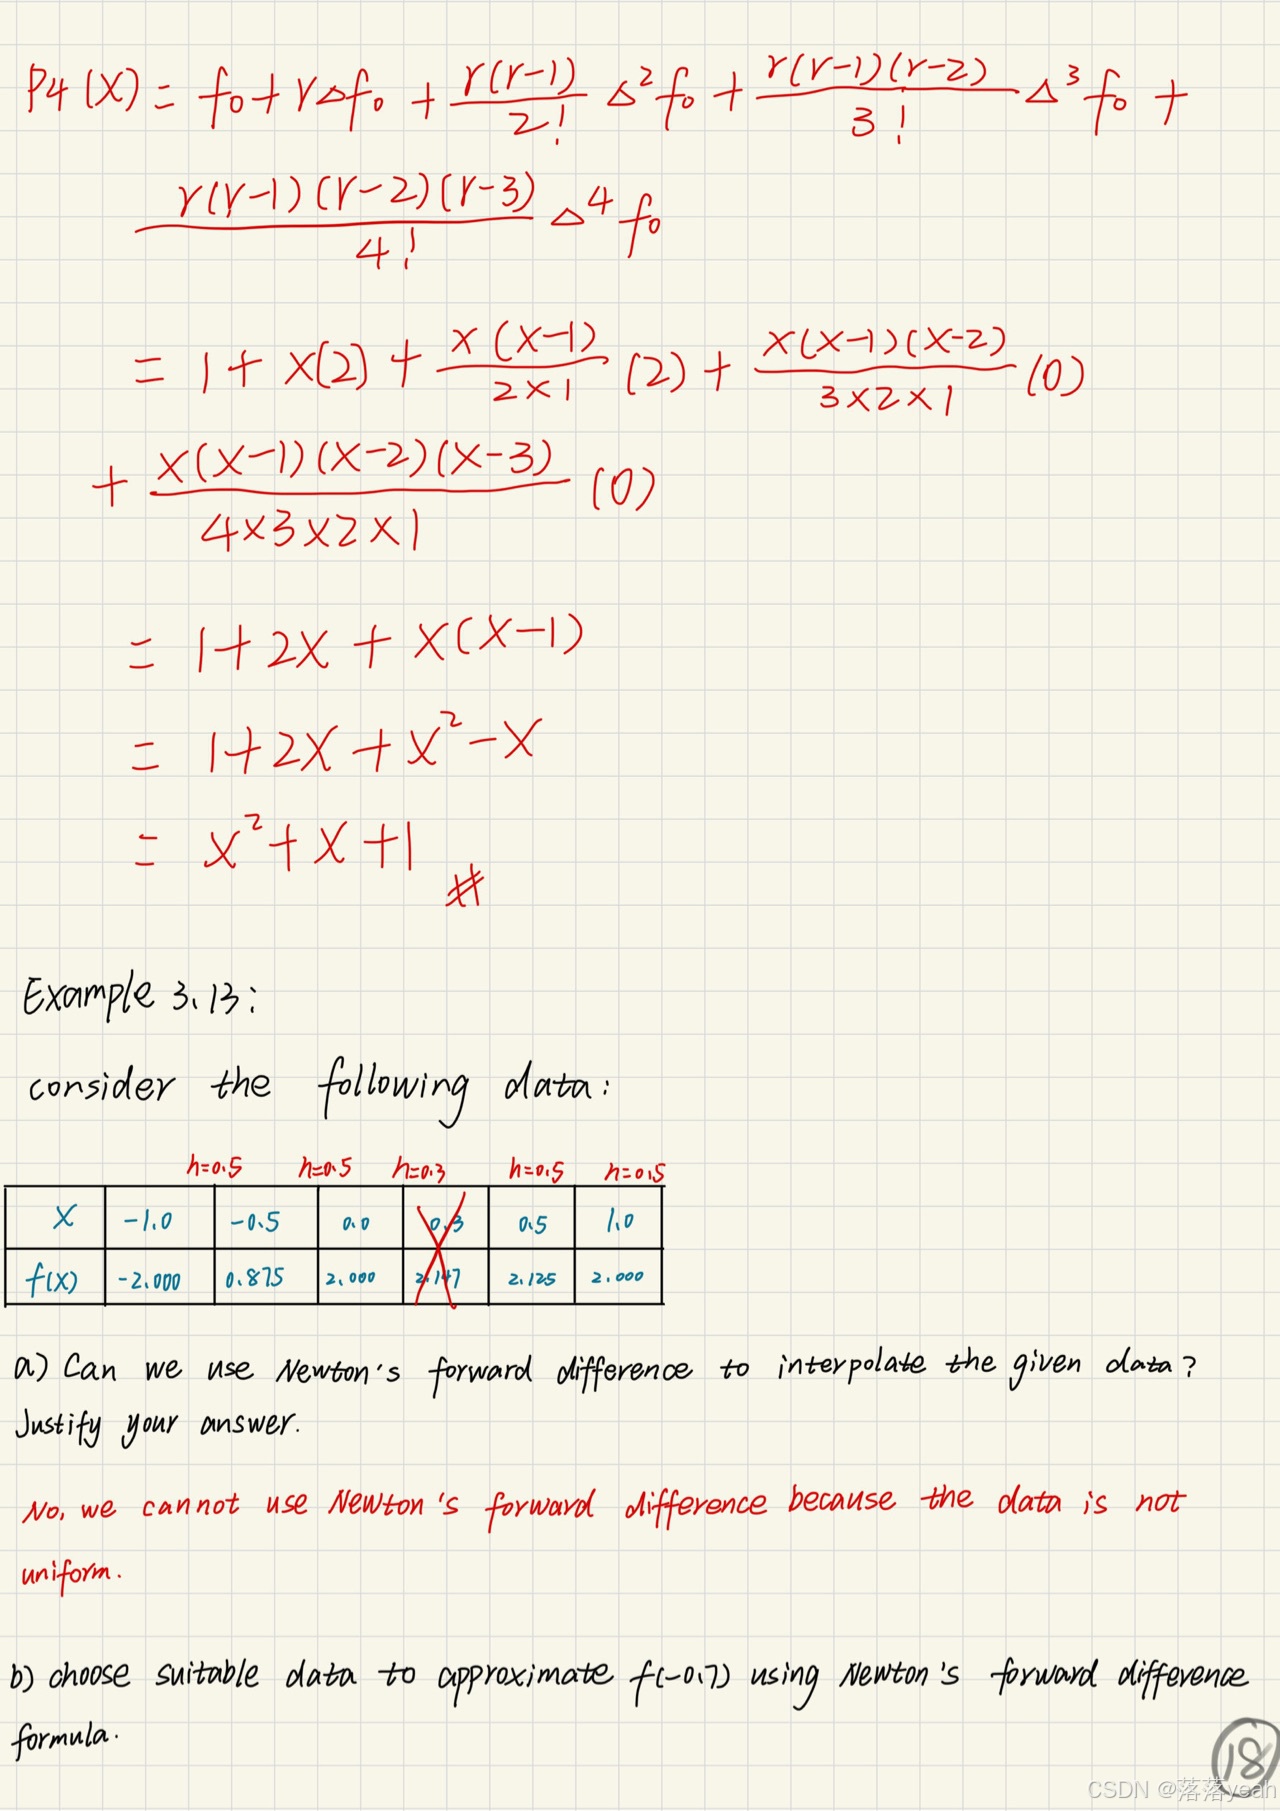 P4(X) = f₀ + rΔf₀ + r(r-1)/2! Δ²f₀ + r(r-1)(r-2)/3! Δ³f₀ +
r(r-1)(r-2)(r-3)/4! Δ⁴f₀
= 1 + x(2) + x(x-1)/2×1 (2) + x(x-1)(x-2)/3×2×1 (0)
+ x(x-1)(x-2)(x-3)/4×3×2×1 (0)
= 1 + 2x + x(x-1)
= 1 + 2x + x² - x
= x² + x + 1 #
Example 3.13:
consider the following data:
h=0.5 h=0.5 h=0.3 h=0.5 h=0.5
X -1.0 -0.5 0.0 0.3 0.5 1.0
f(X) -2.000 0.875 2.000 2.147 2.125 2.000
a) Can we use Newton's forward difference to interpolate the given data?
Justify your answer.
No, we cannot use Newton's forward difference because the data is not
uniform.
b) choose suitable data to approximate f(-0.7) using Newton's forward difference
formula.
18
CSDN @落落yeah